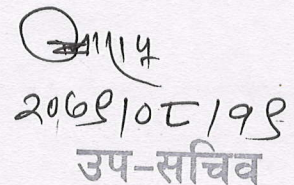 २०७९।०८।१९
उप-सचिव